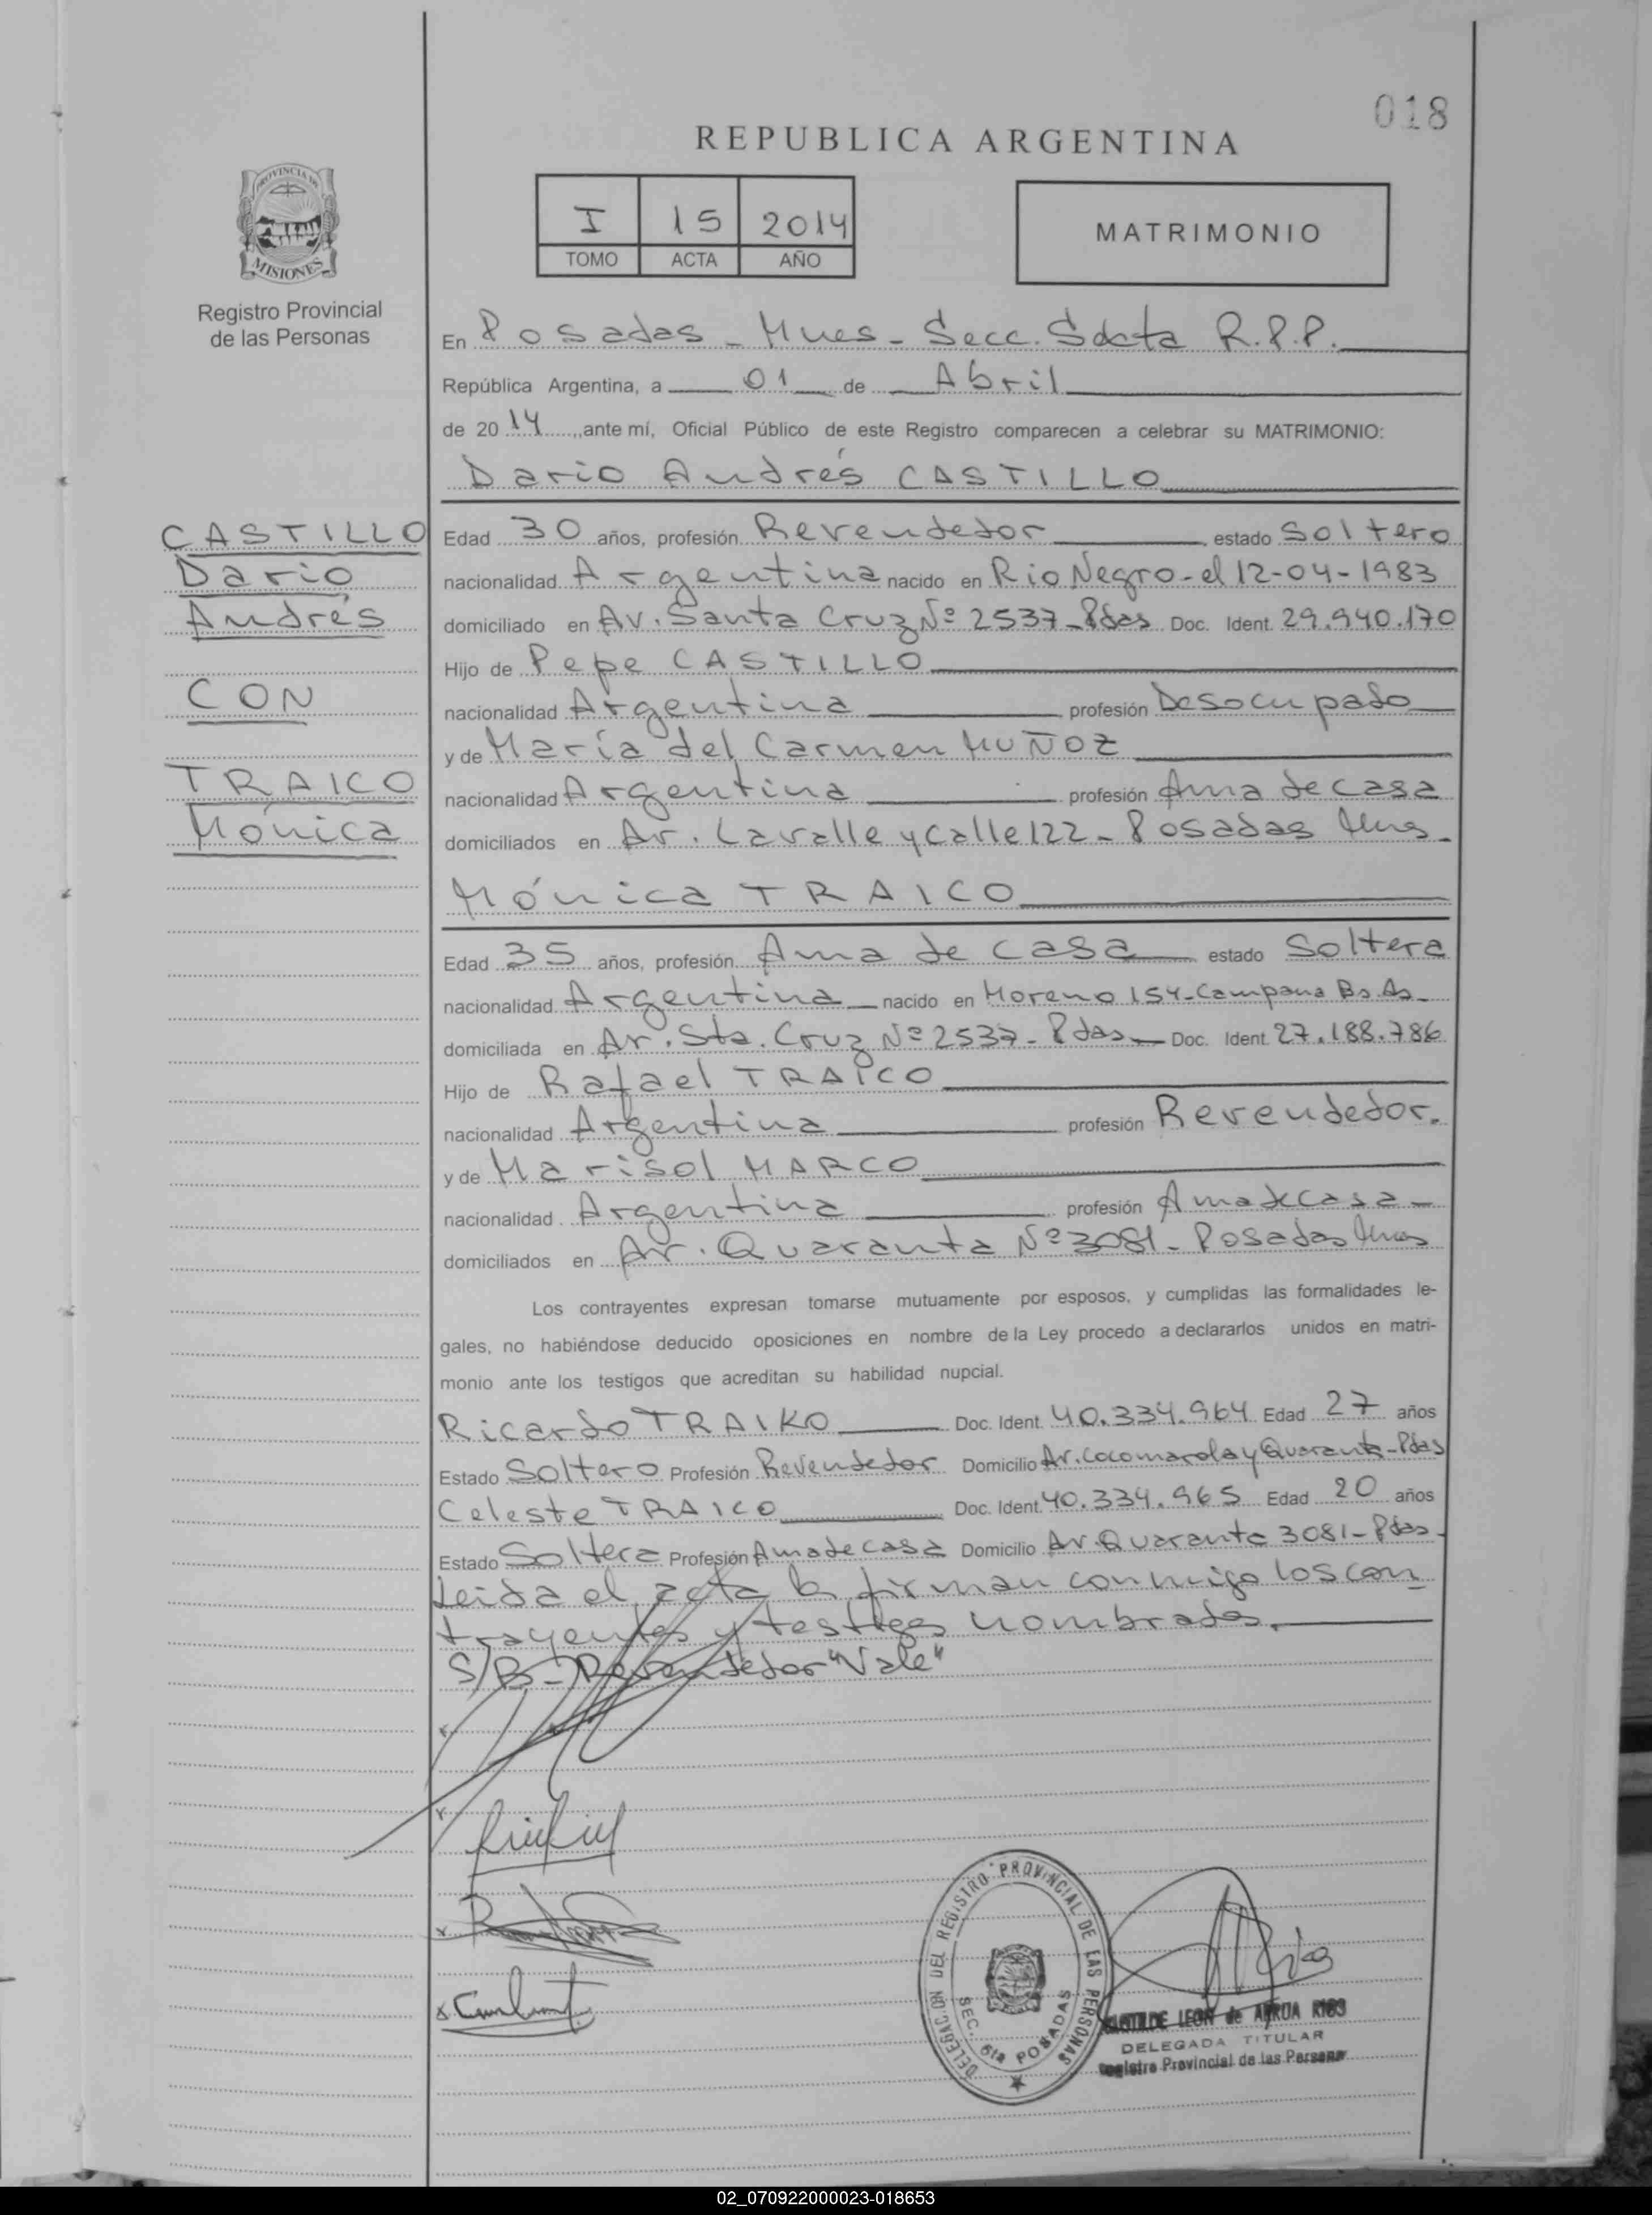 018
REPUBLICA ARGENTINA
PROVINCIA DE
MISIONES
Registro Provincial
de las Personas
I 15 2014
TOMO ACTA AÑO
MATRIMONIO
En Posadas - Mnes - Secc. Sexta R.P.P.
República Argentina, a 01 de Abril
de 2014, ante mí, Oficial Público de este Registro comparecen a celebrar su MATRIMONIO:
Dario Andrés CASTILLO
CASTILLO
Dario
Andrés
CON
TRAICO
Mónica
Edad 30 años, profesión Revendedor estado Soltero
nacionalidad Argentina nacido en Rio Negro - el 12-04-1983
domiciliado en Av. Santa Cruz Nº 2537 - Pdas Doc. Ident. 29.940.170
Hijo de Pepe CASTILLO
nacionalidad Argentina profesión Desocupado
y de María del Carmen MUÑOZ
nacionalidad Argentina profesión Ama de casa
domiciliados en Av. Lavalle y Calle 122 - Posadas Mnes -
Mónica TRAICO
Edad 35 años, profesión Ama de casa estado Soltera
nacionalidad Argentina nacido en Moreno 154 - Campana Bs. As.
domiciliada en Av. Sta. Cruz Nº 2537 - Pdas - Doc. Ident. 27.188.786
Hijo de Rafael TRAICO
nacionalidad Argentina profesión Revendedor.
y de Marisol MARCO
nacionalidad Argentina profesión Ama de casa -
domiciliados en Av. Quaranta Nº 3081 - Posadas Mnes
Los contrayentes expresan tomarse mutuamente por esposos, y cumplidas las formalidades le-
gales, no habiéndose deducido oposiciones en nombre de la Ley procedo a declararlos unidos en matri-
monio ante los testigos que acreditan su habilidad nupcial.
Ricardo TRAIKO Doc. Ident. 40.334.964 Edad 27 años
Estado Soltero Profesión Revendedor Domicilio Av. Cocomarola y Quaranta - Pdas
Celeste TRAICO Doc. Ident. 40.334.965 Edad 20 años
Estado Soltera Profesión Ama de casa Domicilio Av. Quaranta 3081 - Pdas -
Leida el acta la firman conmigo los con
trayentes y testigos nombrados.
S/B - Revendedor "Vale"
DELEGACION DEL REGISTRO PROVINCIAL DE LAS PERSONAS
SEC. 6ta POSADAS
LEON de ARRUA RIOS
DELEGADA TITULAR
Registro Provincial de las Personas
02_070922000023-018653